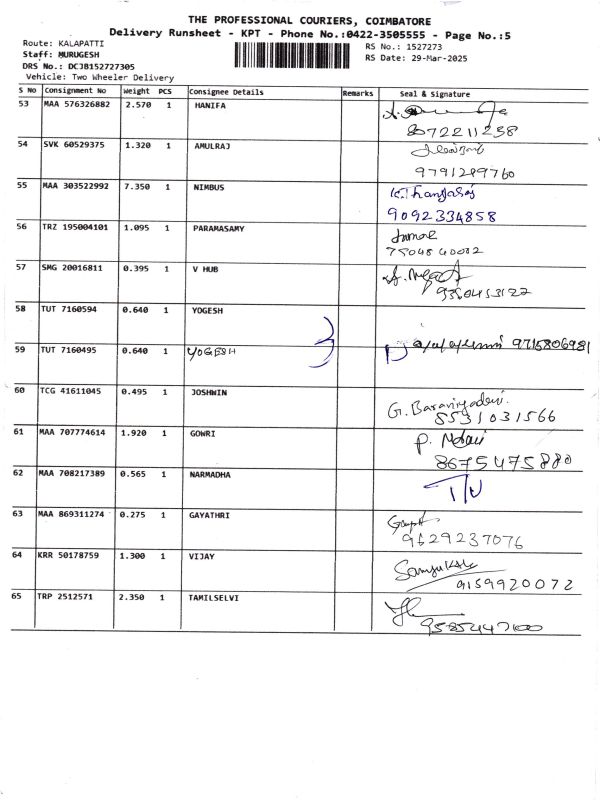 THE PROFESSIONAL COURIERS, COIMBATORE
Delivery Runsheet - KPT - Phone No.:0422-3505555 - Page No.:5
Route: KALAPATTI
Staff: MURUGESH
DRS No.: DCJB152727305
Vehicle: Two Wheeler Delivery
RS No.: 1527273
RS Date: 29-Mar-2025
S No Consignment No Weight PCS Consignee Details Remarks Seal & Signature
53 MAA 576326882 2.570 1 HANIFA
8072211258
54 SVK 60529375 1.320 1 AMULRAJ
9791299760
55 MAA 303522992 7.350 1 NIMBUS
9092334858
56 TRZ 195004101 1.095 1 PARAMASAMY
57 SMG 20016811 0.395 1 V HUB
58 TUT 7160594 0.640 1 YOGESH
9715806981
59 TUT 7160495 0.640 1 YOGESH
60 TCG 41611045 0.495 1 JOSHWIN
5531031566
61 MAA 707774614 1.920 1 GOWRI
8675475880
62 MAA 708217389 0.565 1 NARMADHA
63 MAA 869311274 0.275 1 GAYATHRI
9629237076
64 KRR 50178759 1.300 1 VIJAY
9159920072
65 TRP 2512571 2.350 1 TAMILSELVI
9585447100